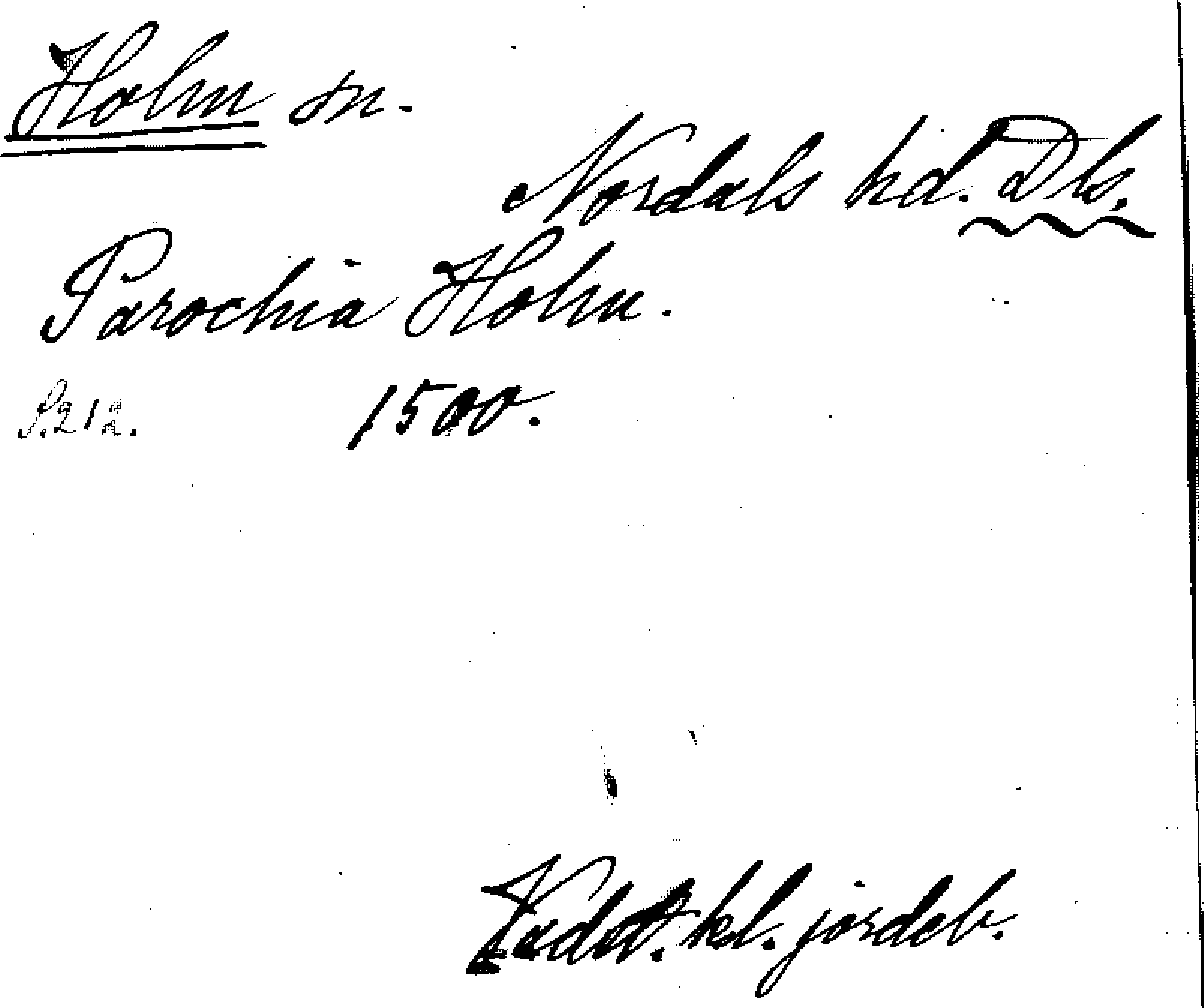 Holm sn.
Nordals hd. Dls.
Parochia Holm.
S. 212. 1500.
kl. jordeb.